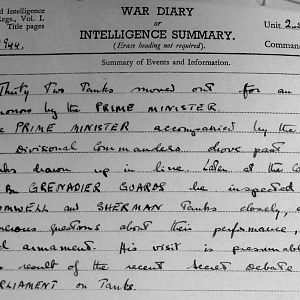 WAR DIARY
d Intelligence
Regs., Vol. I.
Title pages
or
INTELLIGENCE SUMMARY.
(Erase heading not required).
Unit
Comman
1944.
Summary of Events and Information.
Thirty Two Tanks moved out for an
by the PRIME MINISTER
e PRIME MINISTER accompanied by the
Divisional Commanders drove past
drawn up in line. Later, at the
Bn GRENADIER GUARDS he inspected
OMWELL and SHERMAN Tanks closely,
questions about their performance,
d armament. His visit is presumably
result of the recent Secret Debate
RLIAMENT on Tanks.